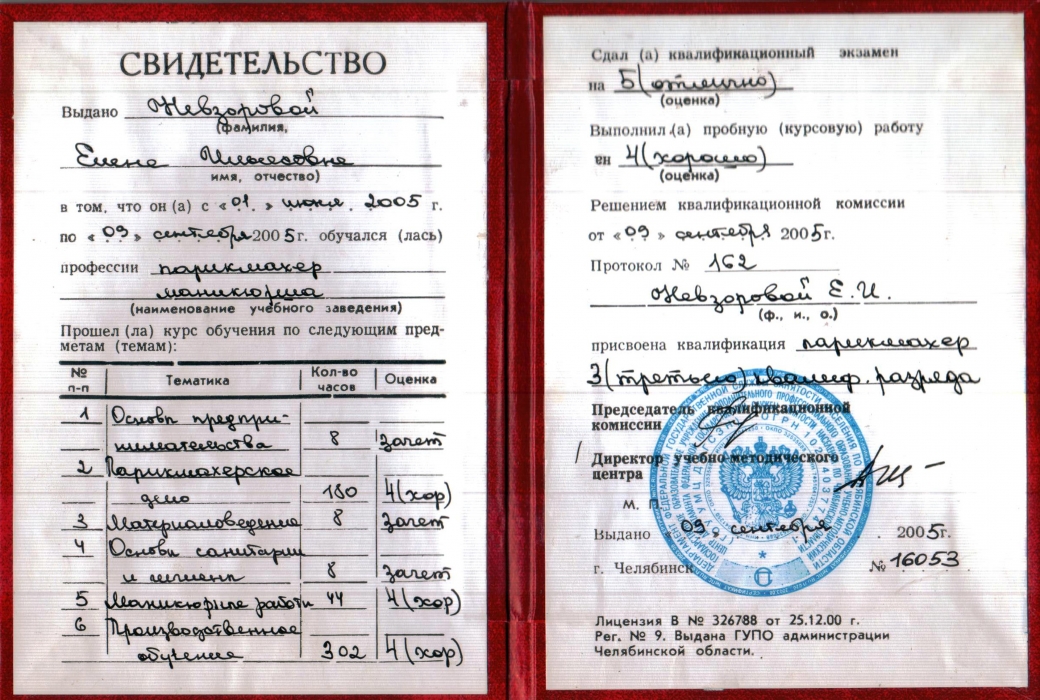 СВИДЕТЕЛЬСТВО
Выдано Невзоровой
(фамилия,
Елене
имя, отчество)
в том, что он (а) с «01.» июня. 2005 г.
по «09» сентября 2005г. обучался (лась)
профессии парикмахер
маникюрша
(наименование учебного заведения)
Прошел (ла) курс обучения по следующим пред-
метам (темам):
№ п-п Тематика Кол-во часов Оценка
1 Основы предпри-
нимательства 8 зачет
2 Парикмахерское
дело 180 4(хор)
3 Материаловедение 8 зачет
4 Основы санитарии
и гигиены 8 зачет
5 Маникюрные работы 44 4(хор)
6 Производственное
обучение 302 4(хор)
Сдал (а) квалификационный экзамен
на 5(отлично)
(оценка)
Выполнил (а) пробную (курсовую) работу
4(хорошо)
(оценка)
Решением квалификационной комиссии
от «09» сентября 2005г.
Протокол № 162
Невзоровой Е.И.
(ф., и., о.)
присвоена квалификация парикмахер
3(третьего) квалиф. разряда
Председатель квалификационной
комиссии
Директор учебно-методического
центра
М. П.
Выдано «09» сентября 2005г.
г. Челябинск № 16053
Лицензия В № 326788 от 25.12.00 г.
Рег. № 9. Выдана ГУПО администрации
Челябинской области.